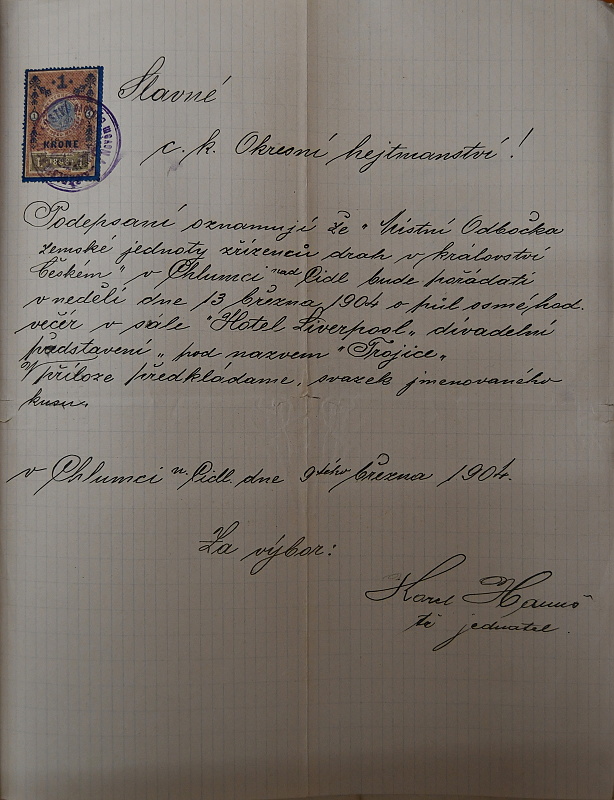 1
KRONE
1898
Slavné
c. k. Okresní hejtmanství!
Podepsaní oznamují že "Místní Odbočka
zemské jednoty zřízenců drah v království
Českém" v Chlumci nad Cidl bude pořádati
v neděli dne 13 března 1904 o půl osmé hod.
večer v sále "Hotel Liverpool" divadelní
představení " pod nazvem "Trojice"
V příloze předkládame, svazek jmenovaného
kusu.
v Chlumci n. Cidl. dne 9tého března 1904.
Za výbor:
Karel Hanuš
jednatel.